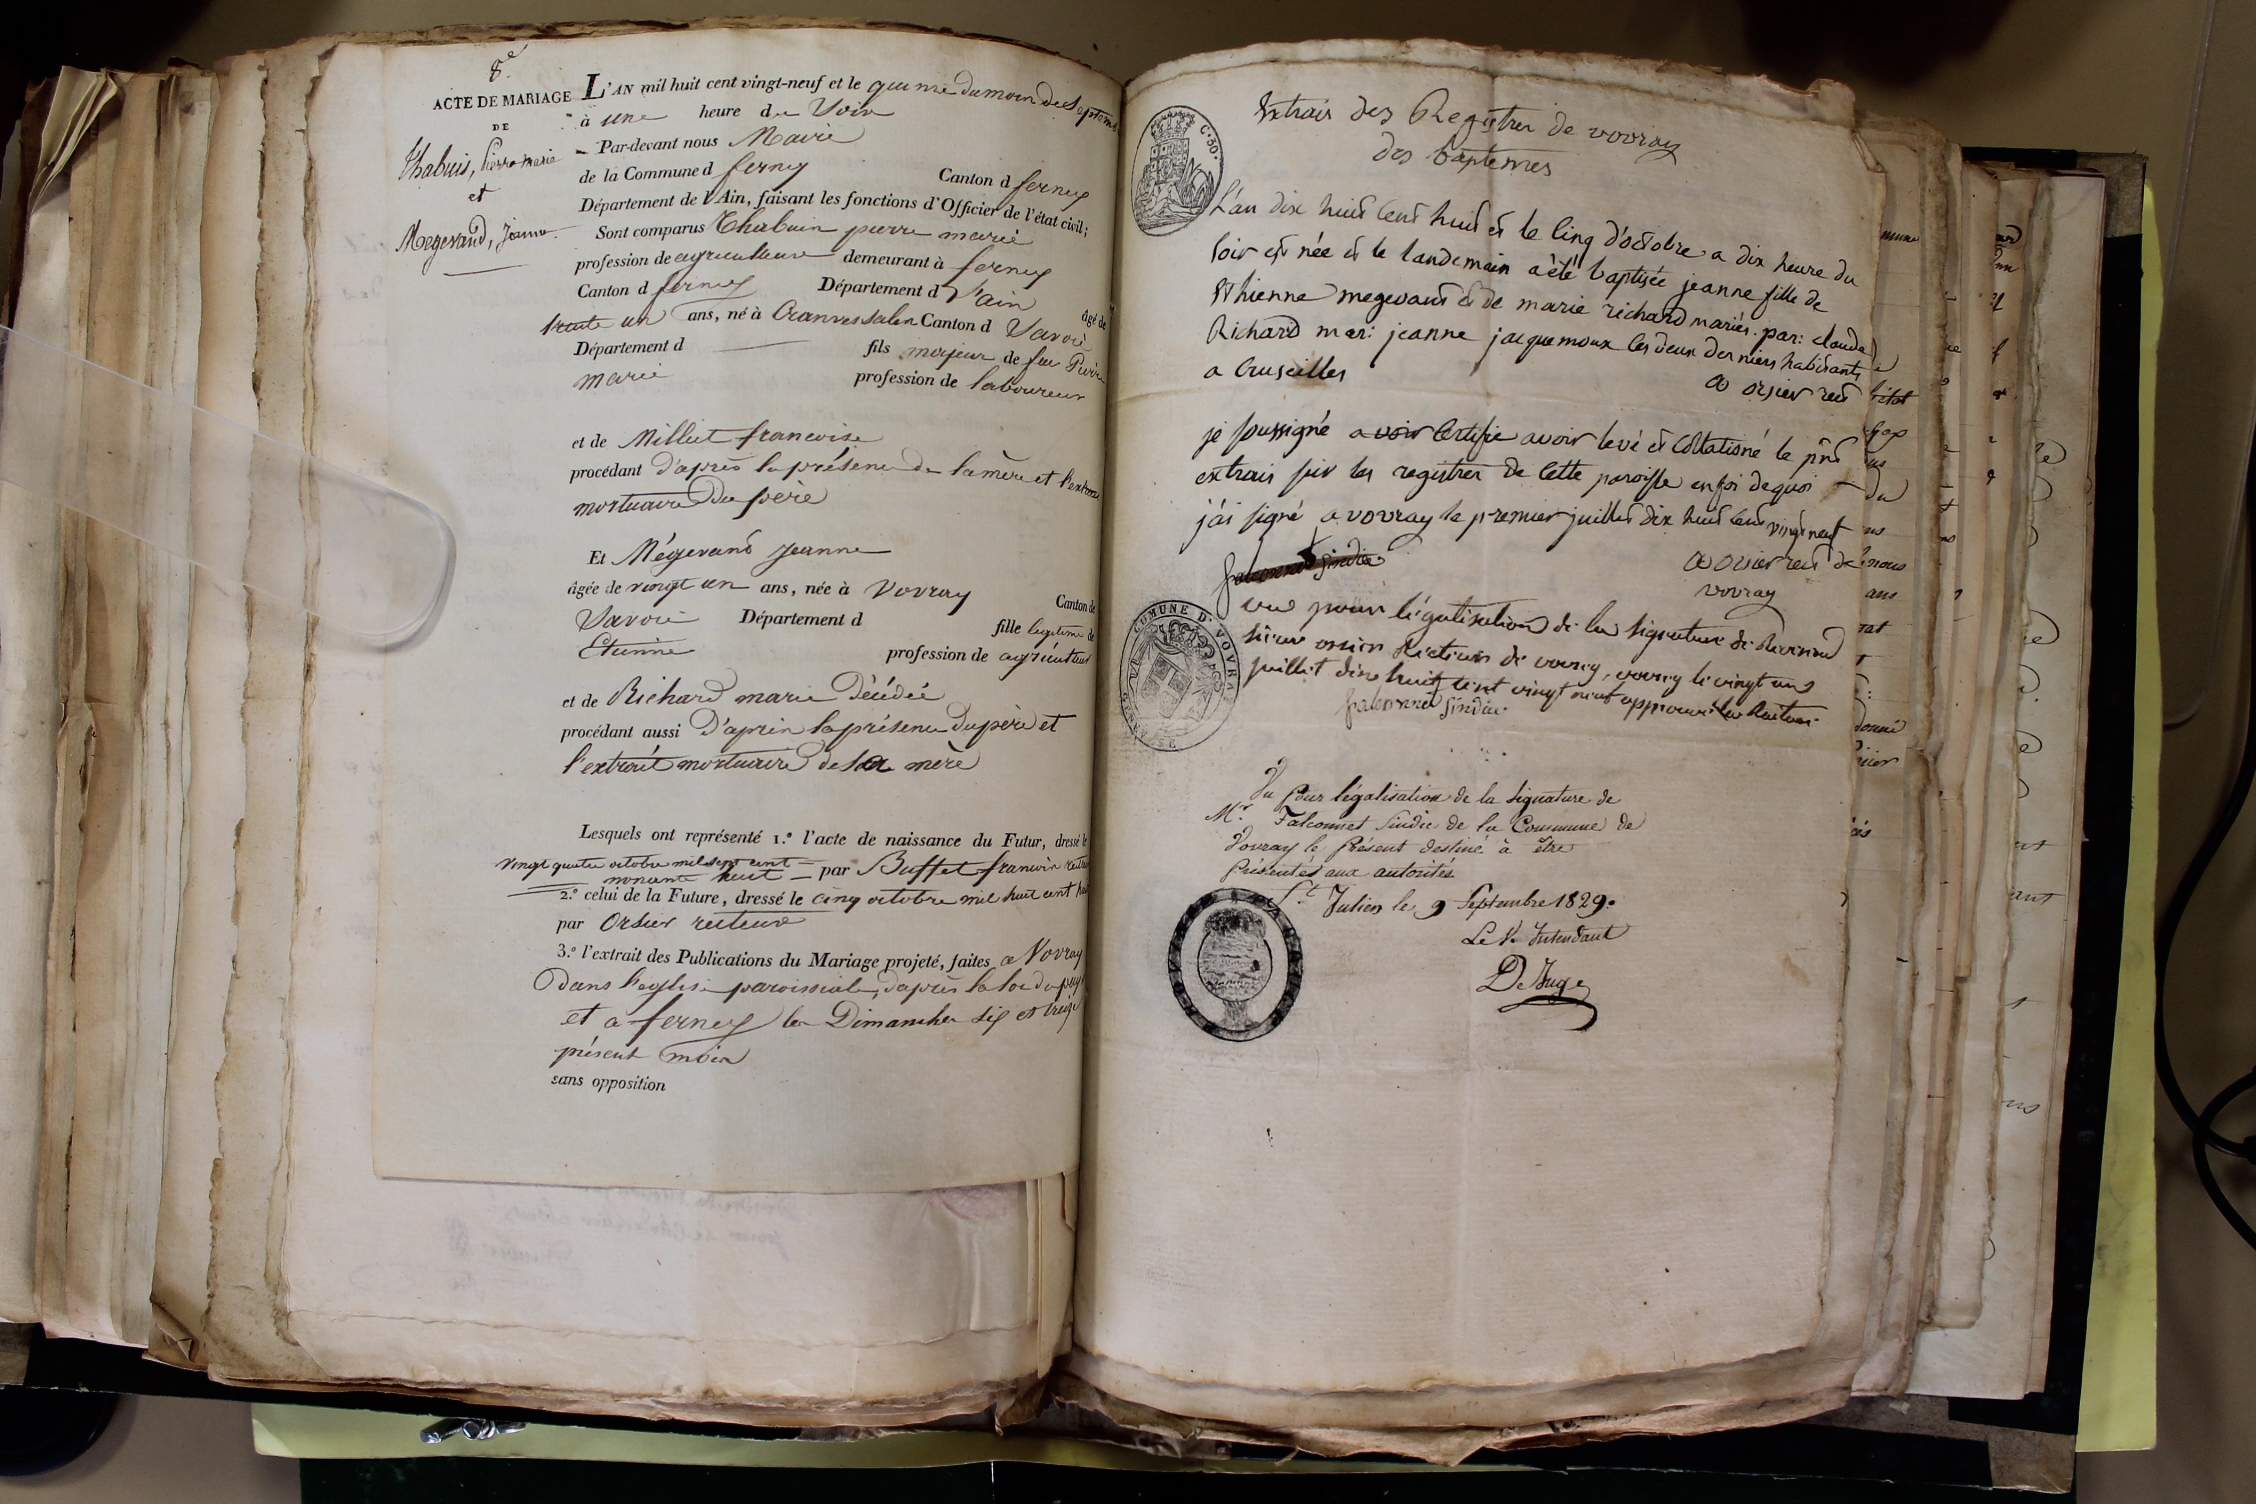 8.e
ACTE DE MARIAGE
DE
Chabuis, Pierre marie
et
Megevand, Jeanne.
L'AN mil huit cent vingt-neuf et le quinze du mois de Septembre
à une heure du Soir
Par-devant nous Maire
de la Commune d ferney Canton d ferney
Département de l'Ain, faisant les fonctions d'Officier de l'état civil;
Sont comparus Chabuis pierre marie
profession de agriculteur demeurant à ferney
Canton d ferney Département d l'ain âgé de
trente un ans, né à Cranves Salen Canton d Savoie
Département d fils majeur de feu Pierre
marie profession de laboureur
et de Millet francoise
procédant d'après la présence de la mère et l'extrait
mortuaire du père
Et Mégevand Jeanne
âgée de vingt un ans, née à Vovray Canton de
Savoie Département d fille legitime de
Etienne profession de agriculteur
et de Richard marie Décédée
procédant aussi D'après la présence du père et
l'extrait mortuaire de sa mère
Lesquels ont représenté 1.º l'acte de naissance du Futur, dressé le
vingt quatre octobre mil sept cent
nonante huit par Buffet francois recteur
2.º celui de la Future, dressé le cinq octobre mil huit cent huit
par Orsier recteur
3.º l'extrait des Publications du Mariage projeté, faites a Vovray
Dans l'eglise paroissiale, d'après la loi du pays
et a ferney les Dimanches six et treize
présent mois
sans opposition
C. 30.
Extrais des Registres de vovray
des baptemes
L'an dix huit cent huit et le cinq d'octobre a dix heure du
soir est née et le landemain a été baptisée jeanne fille de
Ethienne megevant et de marie richard mariés. par: claude
Richard mar: jeanne jacquemoux les deux derniers habitants
a Cruseilles
orsier rect
je soussigné avoir certifie avoir levé et collationé le pnt
extrais sur les registres de cette paroisse en foi de quoi
j'ai signé a vovray le premier juillet dix huit cent vingt neuf
falconnet sindic
orsier rect de
vovray
COMUNE D. VOVRAY
vu pour légalisation de la signature de Reverend
sieur orsier Recteur de vovray, vovray le vingt un
juillet dix huit cent vingt neuf approuvé le Recteur
falconnet sindic
Vu pour légalisation de la signature de
Mr. Falconnet Sindic de la Commune de
Vovray le présent destiné à être
présentés aux autorités
St. Julien le 9 Septembre 1829.
Le V. Intendant
De Juge